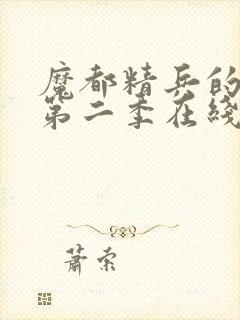 魔都精兵的
第二季在线
萧索